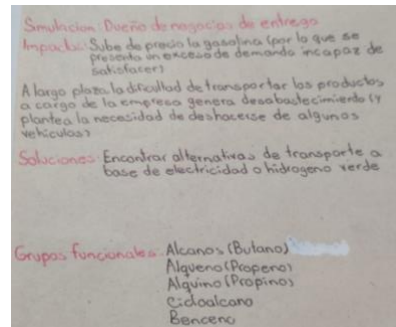 Simulacion: Dueño de negocios de entrega
Impacto: Sube de precio la gasolina (por lo que se
presenta un exceso de demanda incapaz de
satisfacer)
A largo plazo la dificultad de transportar los productos
a cargo de la empresa genera desabastecimiento (y
plantea la necesidad de deshacerse de algunos
vehiculos)
Soluciones: Encontrar alternativas de transporte a
base de electricidad o hidrogeno verde
Grupos funcionales: Alcanos (Butano)
Alqueno (Propeno)
Alquino (Propino)
Cicloalcano
Benceno